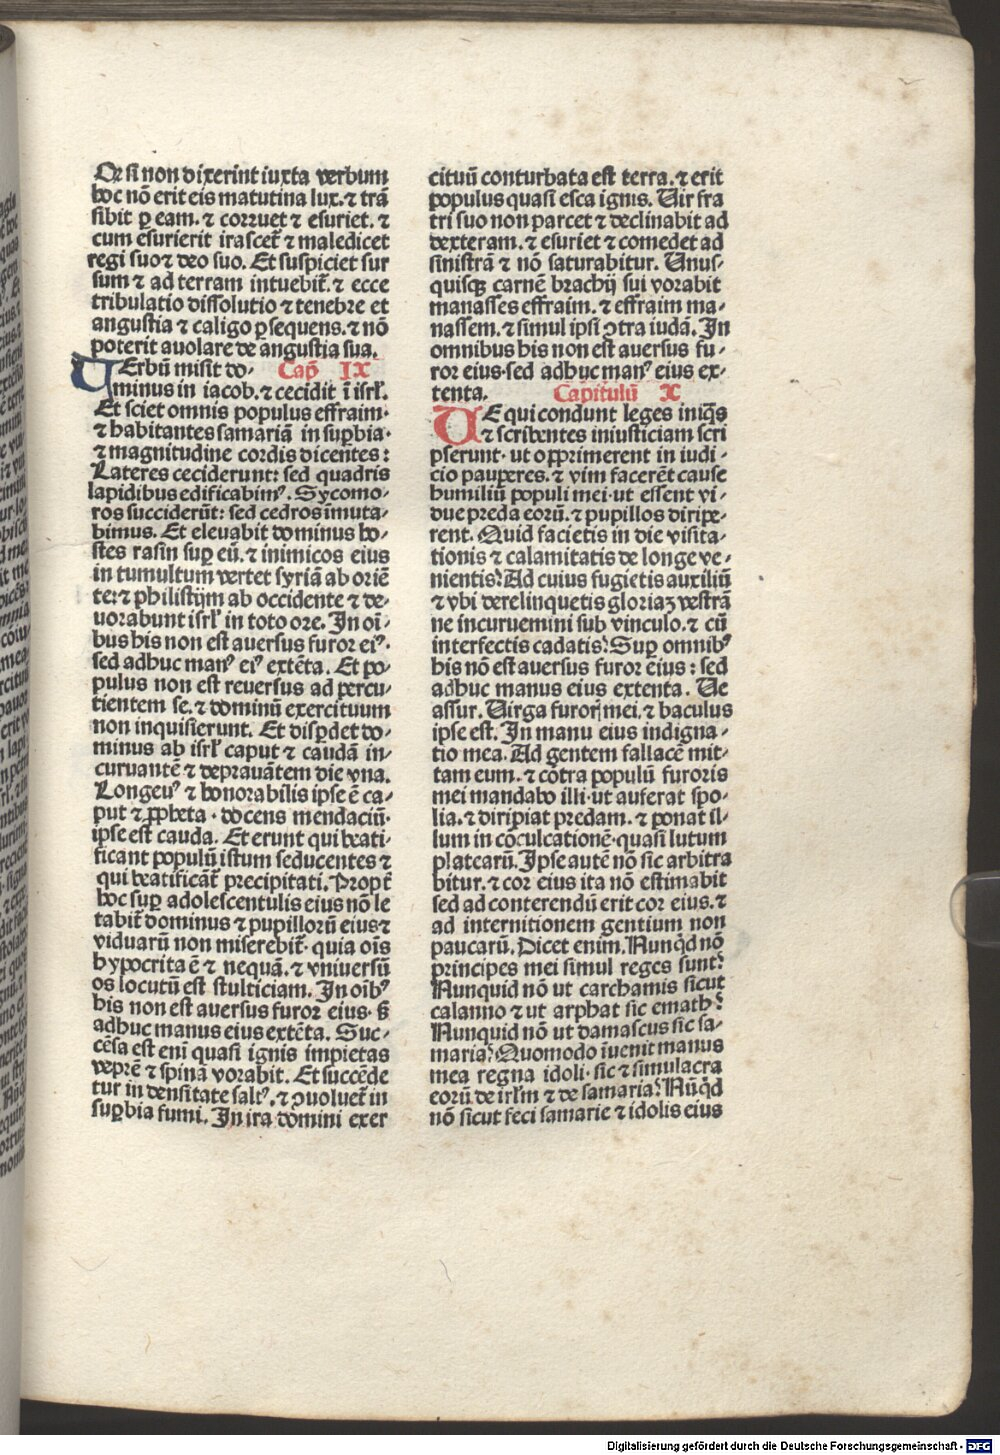 Qꝛ si non dixerint iuxta verbum
hoc nō erit eis matutina lux. ⁊ trā
sibit ꝑ eam. ⁊ corruet ⁊ esuriet. ⁊
cum esurierit irascet̄ ⁊ maledicet
regi suo ⁊ deo suo. Et suspiciet sur
sum ⁊ ad terram intuebit̄. ⁊ ecce
tribulatio dissolutio ⁊ tenebre et
angustia ⁊ caligo ꝑsequens. ⁊ nō
poterit auolare de angustia sua.
VErbū misit do- Cap̄ IX
minus in iacob. ⁊ cecidit ī isrl̄.
Et sciet omnis populus effraim.
⁊ habitantes samariā in suꝑbia.
⁊ magnitudine cordis dicentes:
Lateres ceciderunt: sed quadris
lapidibus edificabimꝰ. Sycomo-
ros succiderūt: sed cedros īmuta-
bimus. Et eleuabit dominus ho-
stes rasin suꝑ eū. ⁊ inimicos eius
in tumultum vertet syriā ab oriē
te: ⁊ philistijm ab occidente ⁊ de-
uorabunt isrl̄ in toto ore. In oī-
bus his non est auersus furor eiꝰ.
sed adhuc manꝰ eiꝰ extēta. Et po-
pulus non est reuersus ad percu-
tientem se. ⁊ dominū exercituum
non inquisierunt. Et disꝑdet do-
minus ab isrl̄ caput ⁊ caudā in-
curuantē ⁊ deprauātem die vna.
Longeuꝰ ⁊ honorabilis ipse ē ca-
put ⁊ ꝓpheta. docens mendaciū.
ipse est cauda. Et erunt qui beati-
ficant populū istum seducentes ⁊
qui beatificāt̄ precipitati. Propt̄
hoc suꝑ adolescentulis eius nō le
tabit̄ dominus ⁊ pupillorū eius ⁊
viduarū non miserebit̄. quia oīs
hypocrita ē ⁊ nequā. ⁊ vniuersū
os locutū est stulticiam. In oībꝰ
his non est auersus furor eius. s̄
adhuc manus eius extēta. Suc-
cēsa est enī quasi ignis impietas
veprē ⁊ spinā vorabit. Et succēde
tur in densitate saltꝰ. ⁊ ꝯuoluet̄ in
suꝑbia fumi. In ira domini exer
cituū conturbata est terra. ⁊ erit
populus quasi esca ignis. Vir fra
tri suo non parcet ⁊ declinabit ad
dexteram. ⁊ esuriet ⁊ comedet ad
sinistrā ⁊ nō saturabitur. Vnus-
quisqꝫ carnē brachij sui vorabit
manasses effraim. ⁊ effraim ma-
nassem. ⁊ simul ipsi ꝯtra iudā. In
omnibus his non est auersus fu-
ror eius. sed adhuc manꝰ eius ex-
tenta. Capitulū X
VE qui condunt leges iniq̄s
⁊ scribentes iniusticiam scri
pserunt. ut opprimerent in iudi-
cio pauperes. ⁊ vim facerēt cause
humiliū populi mei. ut essent vi-
due preda eorū. ⁊ pupillos diripe-
rent. Quid facietis in die visita-
tionis ⁊ calamitatis de longe ve-
nientis? Ad cuius fugietis auxiliū
⁊ vbi derelinquetis gloriaꝫ vestrā
ne incuruemini sub vinculo. ⁊ cū
interfectis cadatis? Suꝑ omnibꝰ
his nō est auersus furor eius: sed
adhuc manus eius extenta. Ve
assur. Virga furorꝭ mei. ⁊ baculus
ipse est. In manu eius indigna-
tio mea. Ad gentem fallacē mit-
tam eum. ⁊ cōtra populū furoris
mei mandabo illi. ut auferat spo-
lia. ⁊ diripiat predam. ⁊ ponat il-
lum in cōculcationē. quasi lutum
platearū. Ipse autē nō sic arbitra
bitur. ⁊ cor eius ita nō estimabit
sed ad conterendū erit cor eius. ⁊
ad internitionem gentium non
paucarū. Dicet enim. Nunqd̄ nō
principes mei simul reges sunt?
Nunquid nō ut carchamis sicut
calanno ⁊ ut arphat sic emath?
Nunquid nō ut damascus sic sa-
maria? Quomodo īuenit manus
mea regna idoli. sic ⁊ simulacra
eorū de irl̄m ⁊ de samaria? Nūqd̄
nō sicut feci samarie ⁊ idolis eius
Digitalisierung gefördert durch die Deutsche Forschungsgemeinschaft - DFG